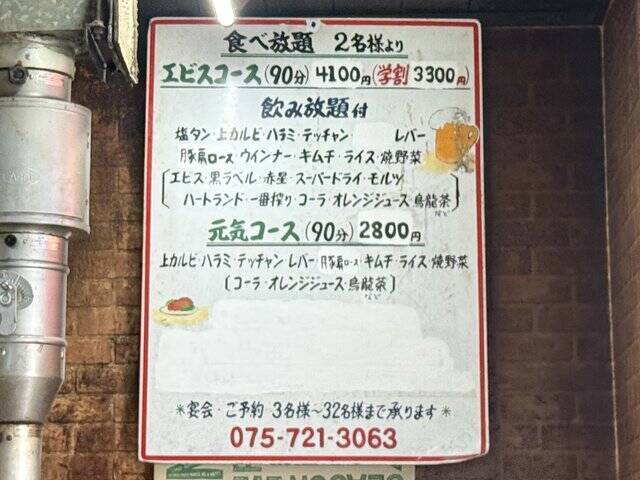 食べ放題 2名様より
エビスコース(90分)4100円(学割3300円)
飲み放題付
塩タン・上カルビ・ハラミ・テッチャン レバー
豚肩ロース・ウインナー・キムチ・ライス・焼野菜
[エビス・黒ラベル・赤星・スーパードライ・モルツ
ハートランド・一番搾り・コーラ・オレンジジュース・烏龍茶など]
元気コース(90分)2800円
上カルビ・ハラミ・テッチャン・レバー・豚肩ロース・キムチ・ライス・焼野菜
[コーラ・オレンジジュース・烏龍茶など]
*宴会・ご予約 3名様〜32名様まで承ります*
075-721-3063